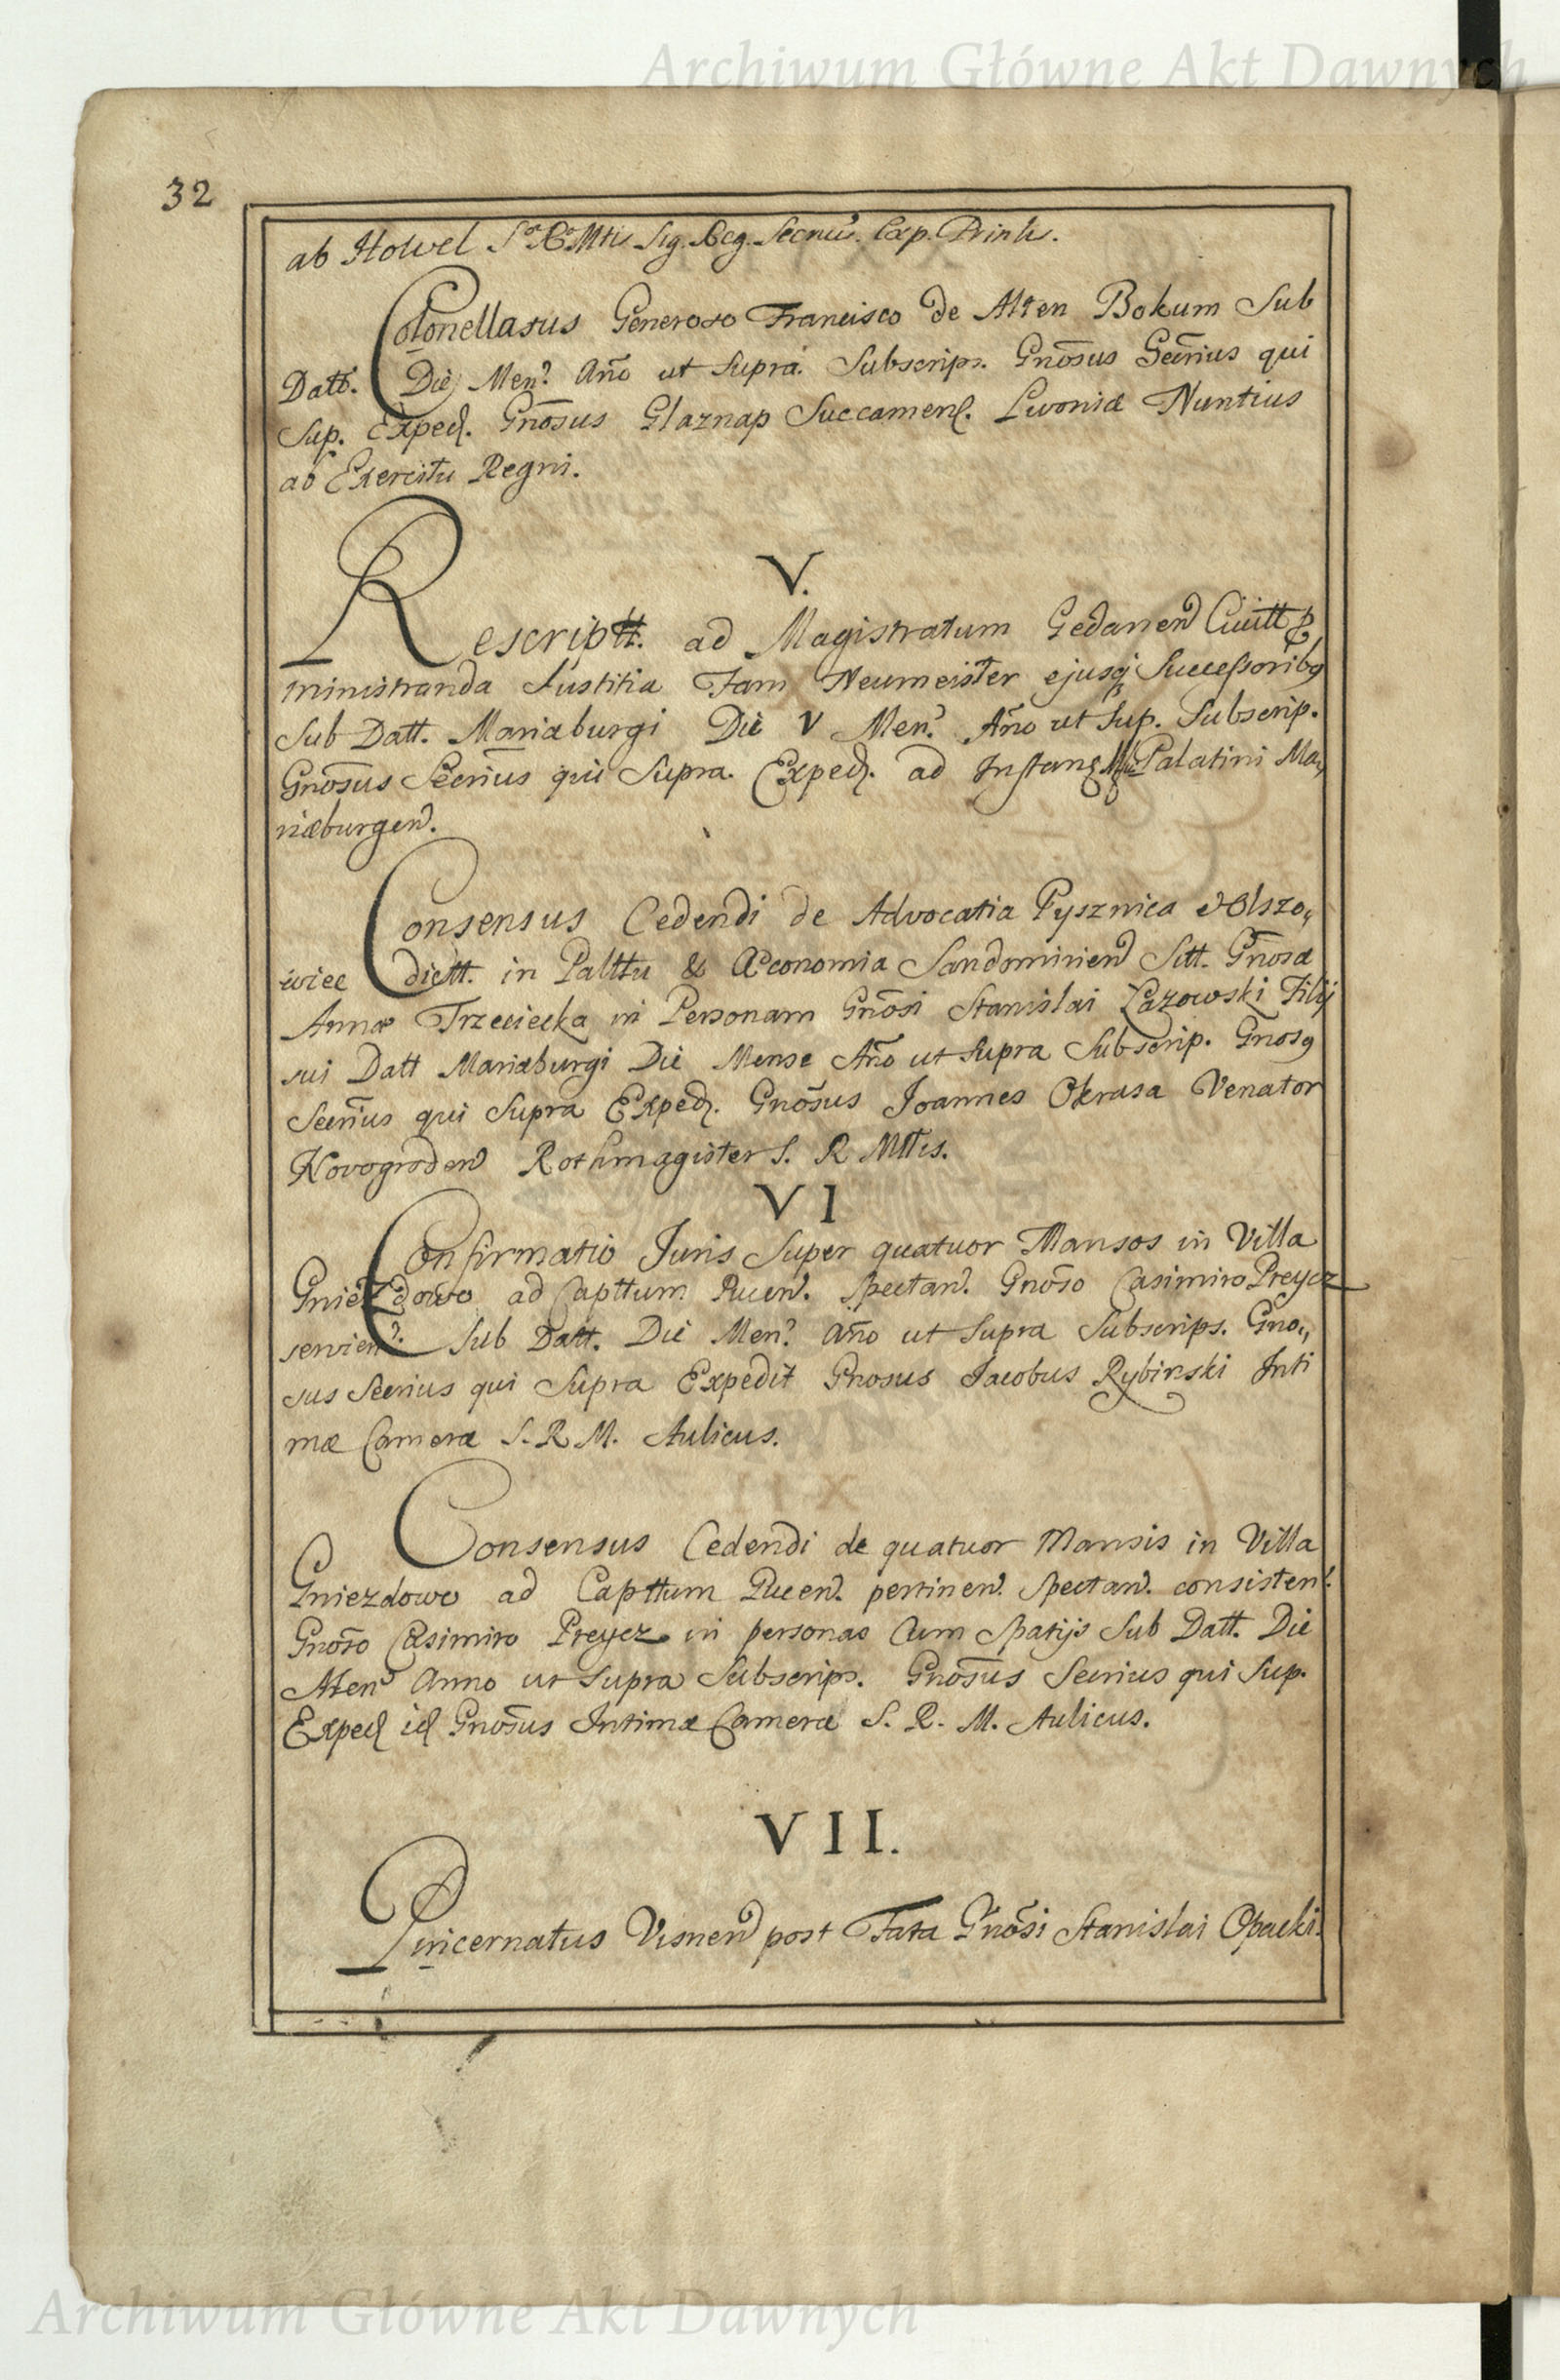 Archiwum Główne Akt Dawnych
32
ab Howel S. R. Mtis Sig. Reg. Secrius. Exp. Printz.
Colonellatus Generoso Francisco de Alten Bokum Sub
Datt. Die Men. Año ut Supra. Subscrips. Gnõsus Secrius qui
Sup. Exped. Gnõsus Glaznap Succamen. Livoniæ Nuntius
ab Exercitu Regni.
V.
Rescriptt. ad Magistratum Gedanen Civitt
ministranda Iustitia Fam Neumeister ejusq Successoribq
Sub Datt. Mariæburgi Die V Men. Año ut Sup. Subscrip.
Gnõsus Secrius qui Supra. Exped. ad Instan Palatini Ma,
riæburgen.
Consensus Cedendi de Advocatia Pysznica et Olszo,
wiec dictt. in Palttu & Œconomia Sandomirien Sitt. Gñosæ
Annæ Trzeciecka in Personam Gnõsi Stanislai Łazowski Filij
sui Datt Mariæburgi Die Mense Año ut Supra Subscrip. Gnosq
Secrius qui Supra Exped. Gnõsus Joannes Okrasa Venator
Novogroden Rothmagister S. R Mttis.
VI
Confirmatio Juris Super quatuor Mansos in Villa
Gniezdowo ad Capttum Pucen. Spectan. Gnõso Casimiro Preycz
servien. Sub Datt. Die Men. Año ut Supra Subscrips. Gno,,
sus Secrius qui Supra Expedit Gnosus Jacobus Rybinski Inti
mæ Cameræ S. R. M. Aulicus.
Consensus Cedendi de quatuor Mansis in Villa
Gniezdowo ad Capttum Pucen. pertinen. Spectan. consisten.
Gnõso Casimiro Preycz in personas Cum Spatijs Sub Datt. Die
Men Anno ut Supra Subscrips. Gnõsus Secrius qui Sup.
Exped id Gnõsus Intimæ Cameræ S. R. M. Aulicus.
VII.
Pincernatus Visnen post Fata Gnõsi Stanislai Opacki.
Archiwum Główne Akt Dawnych